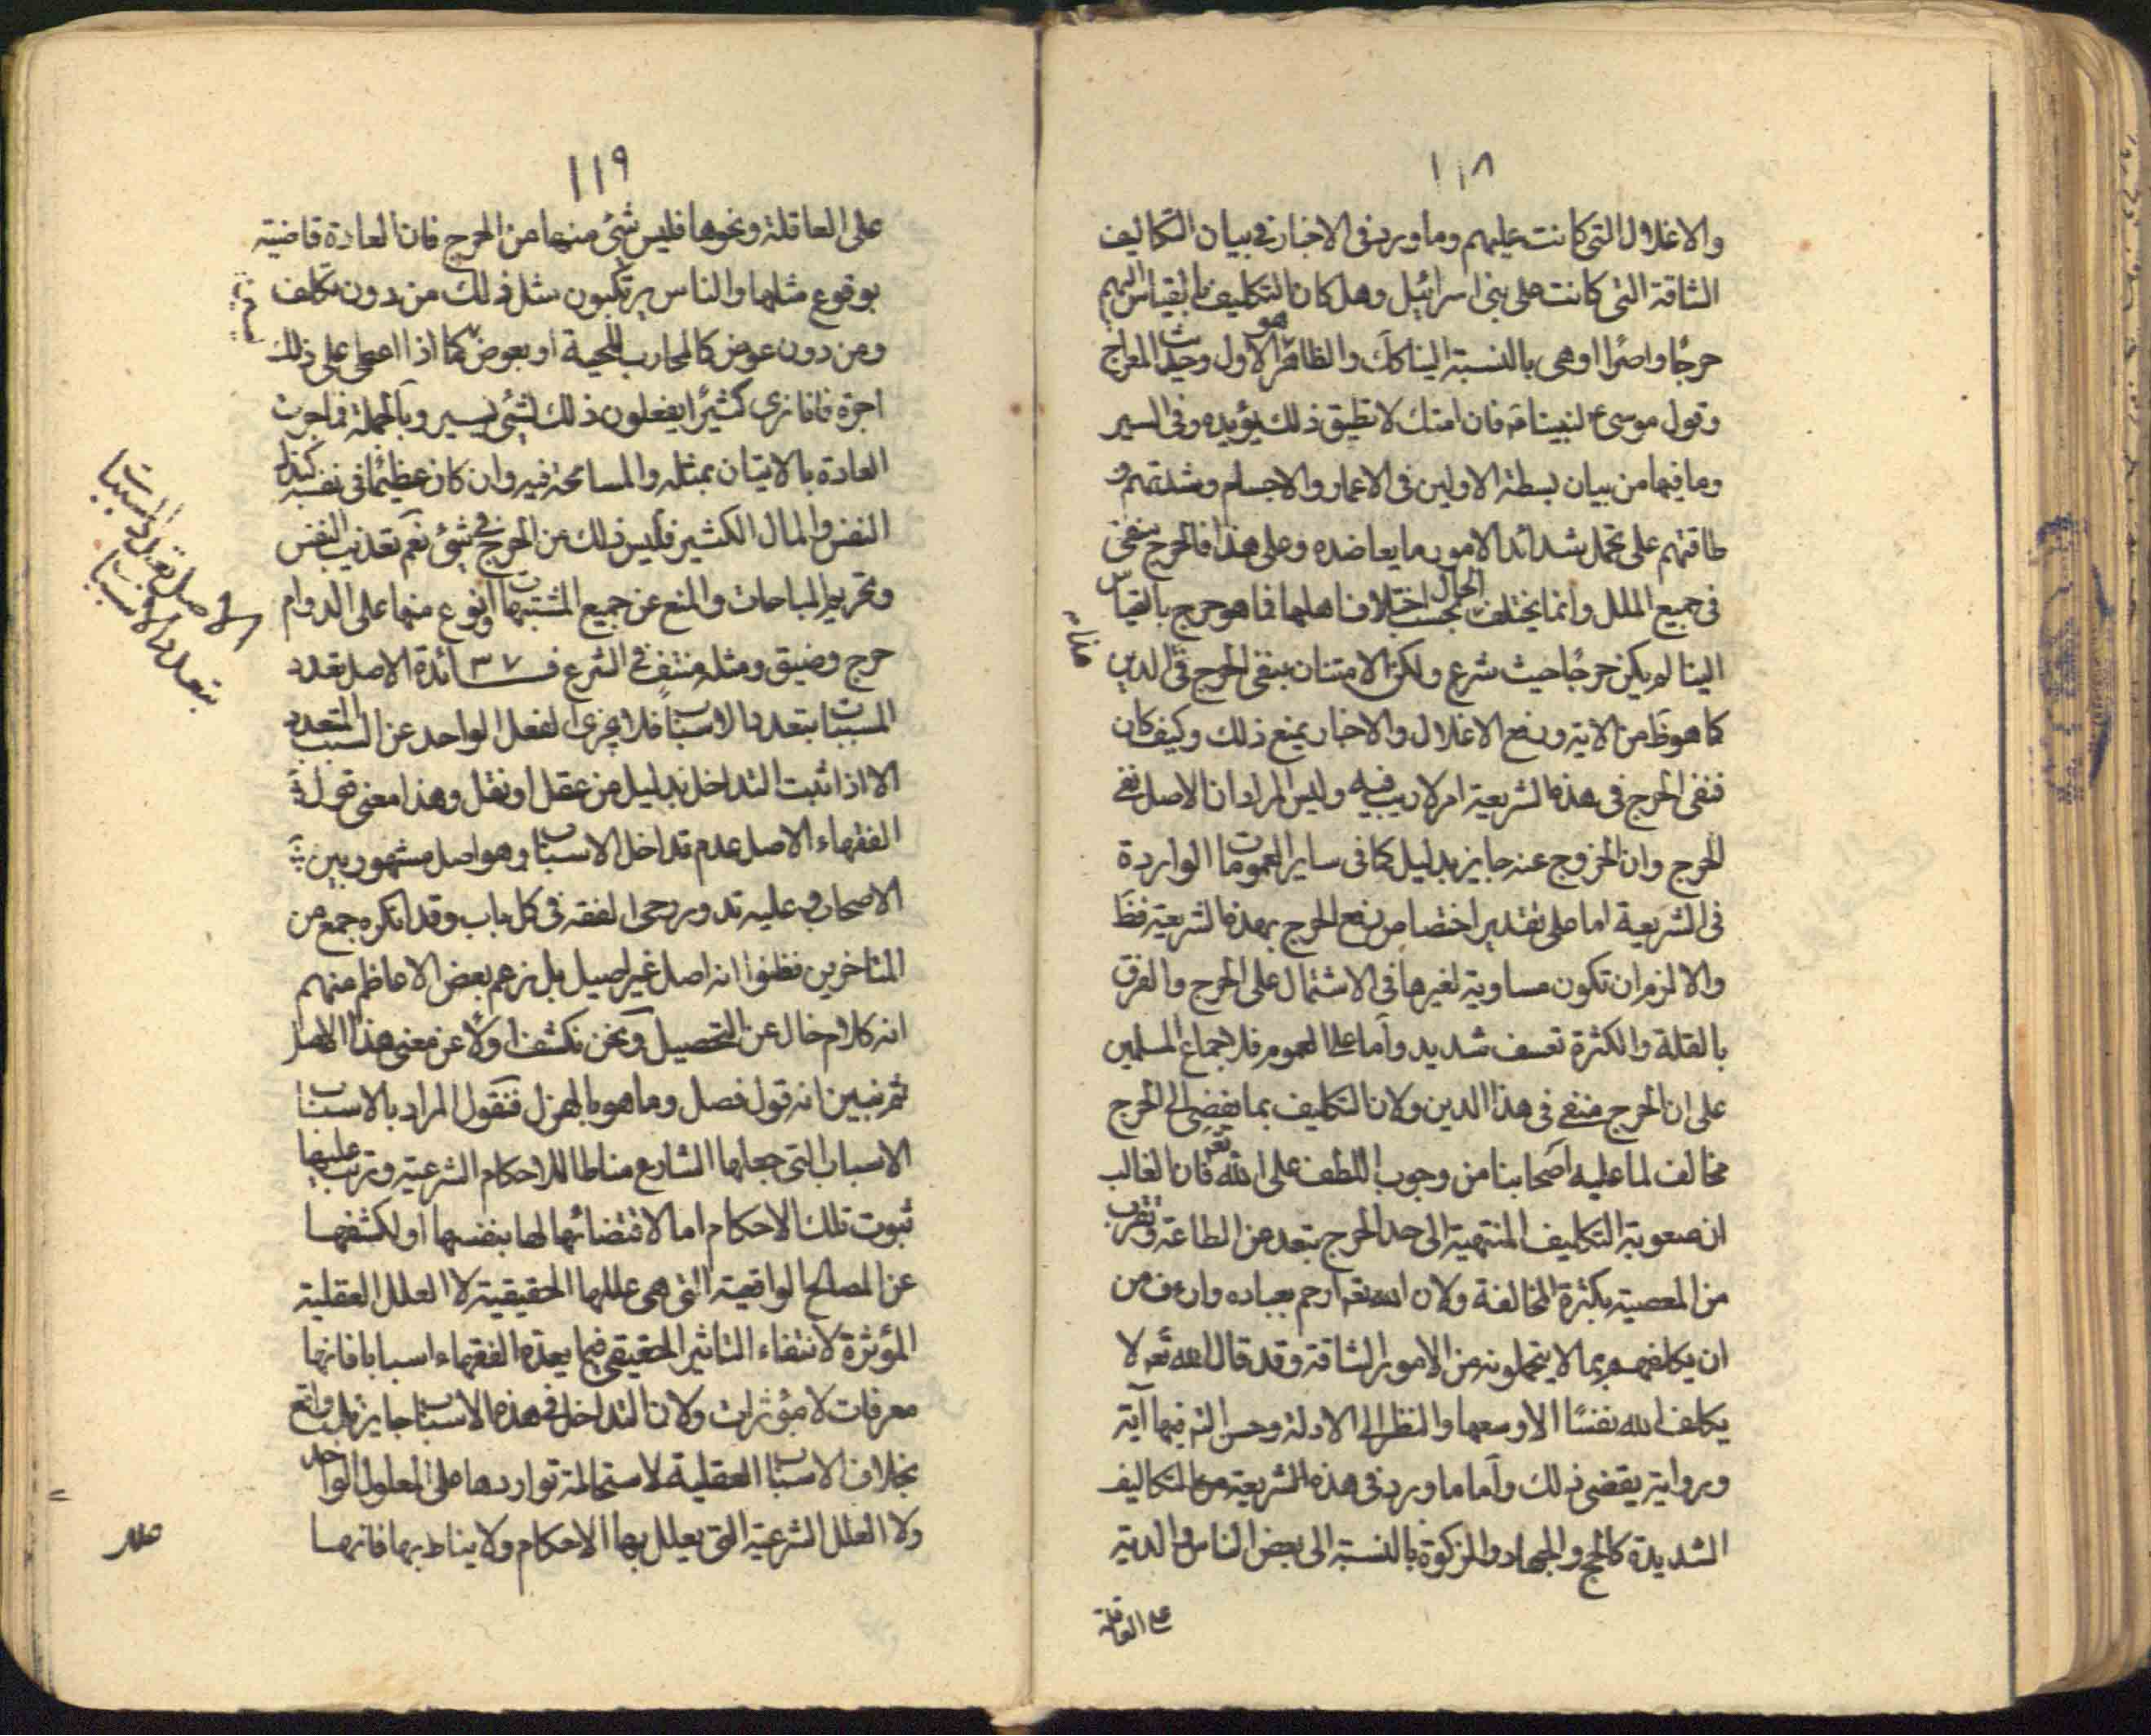 ١١٨
والاغلال التى كانت عليهم وما ورد فى الاخبار فى بيان التكاليف
الشاقة التى كانت على بنى اسرائيل وهل كان التكليف بها بالقياس اليهم
حرجًا واصرًا او هى بالنسبة الينا كك والظاهر هو الاول وحديث المعراج
وقول موسى ع لنبينا ص فان امتك لا تطيق ذلك يؤيده وفى السير
وما فيها من بيان بسطة الاولين فى الاعمار والاجسام وشدتهم و
طاقتهم على تحمل شدائد الامور ما يعاضده وعلى هذا فالحرج منفى
فى جميع الملل وانما يختلف الحال بحسب اختلاف اهلها فما هو حرج بالقياس
الينا لم يكن حرجًا حيث شرع ولكن الامتنان بنفى الحرج فى الدين
كما هو ظ من الاية ورفع الاغلال والاخبار يمنع ذلك وكيف كان
فنفى الحرج فى هذه الشريعة امر لا ريب فيه وليس المراد ان الاصل نفى
الحرج وان الخروج عنه جايز بدليل كما فى ساير العمومات الواردة
فى الشريعة اما على تقدير اختصاص رفع الحرج بهذه الشريعة فظ
والا لزم ان تكون مساوية لغيرها فى الاشتمال على الحرج والفرق
بالقلة والكثرة تعسف شديد واما على العموم فلاجماع المسلمين
على ان الحرج منفى فى هذا الدين ولان التكليف بما يفضى الى الحرج
مخالف لما عليه اصحابنا من وجوب اللطف على الله تعم فان الغالب
ان صعوبة التكليف المنتهية الى حد الحرج تبعد عن الطاعة وتقرب
من المعصية بكثرة المخالفة ولان الله تعم ارحم بعباده وارءف من
ان يكلفهم بما لا يتحملونه من الامور الشاقة وقد قال الله تعم لا
يكلف الله نفسًا الا وسعها والنظر الى الادلة وحسن فيها آية
ورواية يقضى ذلك واما ما ورد فى هذه الشريعة من التكاليف
الشديدة كالحج والجهاد والزكوة بالنسبة الى بعض الناس والدية
على العاقلة
١١٩
على العاقلة ونحوها فليس شئ منها من الحرج فان العادة قاضية
بوقوع مثلها والناس يرتكبون مثل ذلك من دون تكلف
ومن دون عوض كالمحارب للحمية او بعوض كما اذا اعطى على ذلك
اجرة فانا نرى كثيرًا يفعلون ذلك لشئ يسير وبالجملة فما جرت
العادة بالاتيان بمثله والمسامحة فيه وان كان عظيمًا فى نفسه كبذل
النفس والمال الكثير فليس ذلك من الحرج فى شئ نعم تعذيب النفس
وتحريم المباحات والمنع عن جميع المشتهيات او نوع منها على الدوام
حرج وضيق ومثله منتفٍ فى الشرع فــــ٣٧ــــائدة الاصل تعدد
المسببات بتعدد الاسباب فلا يجزى الفعل الواحد عن السبب المتعدد
الا اذا ثبت التداخل بدليل من عقل او نقل وهذا معنى قول
الفقهاء الاصل عدم تداخل الاسباب وهو اصل مشهور بين
الاصحاب وعليه تدور رحى الفقه فى كل باب وقد انكره جمع من
المتاخرين فظنوا انه اصل غير اصيل بل زعم بعض الاعاظم منهم
انه كلام خال عن التحصيل ونحن نكشف اولًا عن معنى هذا الاصل
ثم نبين انه قول فصل وما هو بالهزل فنقول المراد بالاسباب
الاسباب التى جعلها الشارع مناطا للاحكام الشرعية ورتب عليها
ثبوت تلك الاحكام اما لاقتضائها لها بنفسها او لكشفها
عن المصالح الواقعية التى هى عللها الحقيقية لا العلل العقلية
المؤثرة لانتفاء التاثير الحقيقى فيما يعده الفقهاء اسبابا فانها
معرفات لا مؤثرات ولان التداخل فى هذه الاسباب جايز بل واقع
بخلاف الاسباب العقلية لاستحالة تواردها على المعلول الواحد
ولا العلل الشرعية التى يعلل بها الاحكام ولا يناط بها فانها
الاصل تعدد المسببات
بتعدد الاسباب